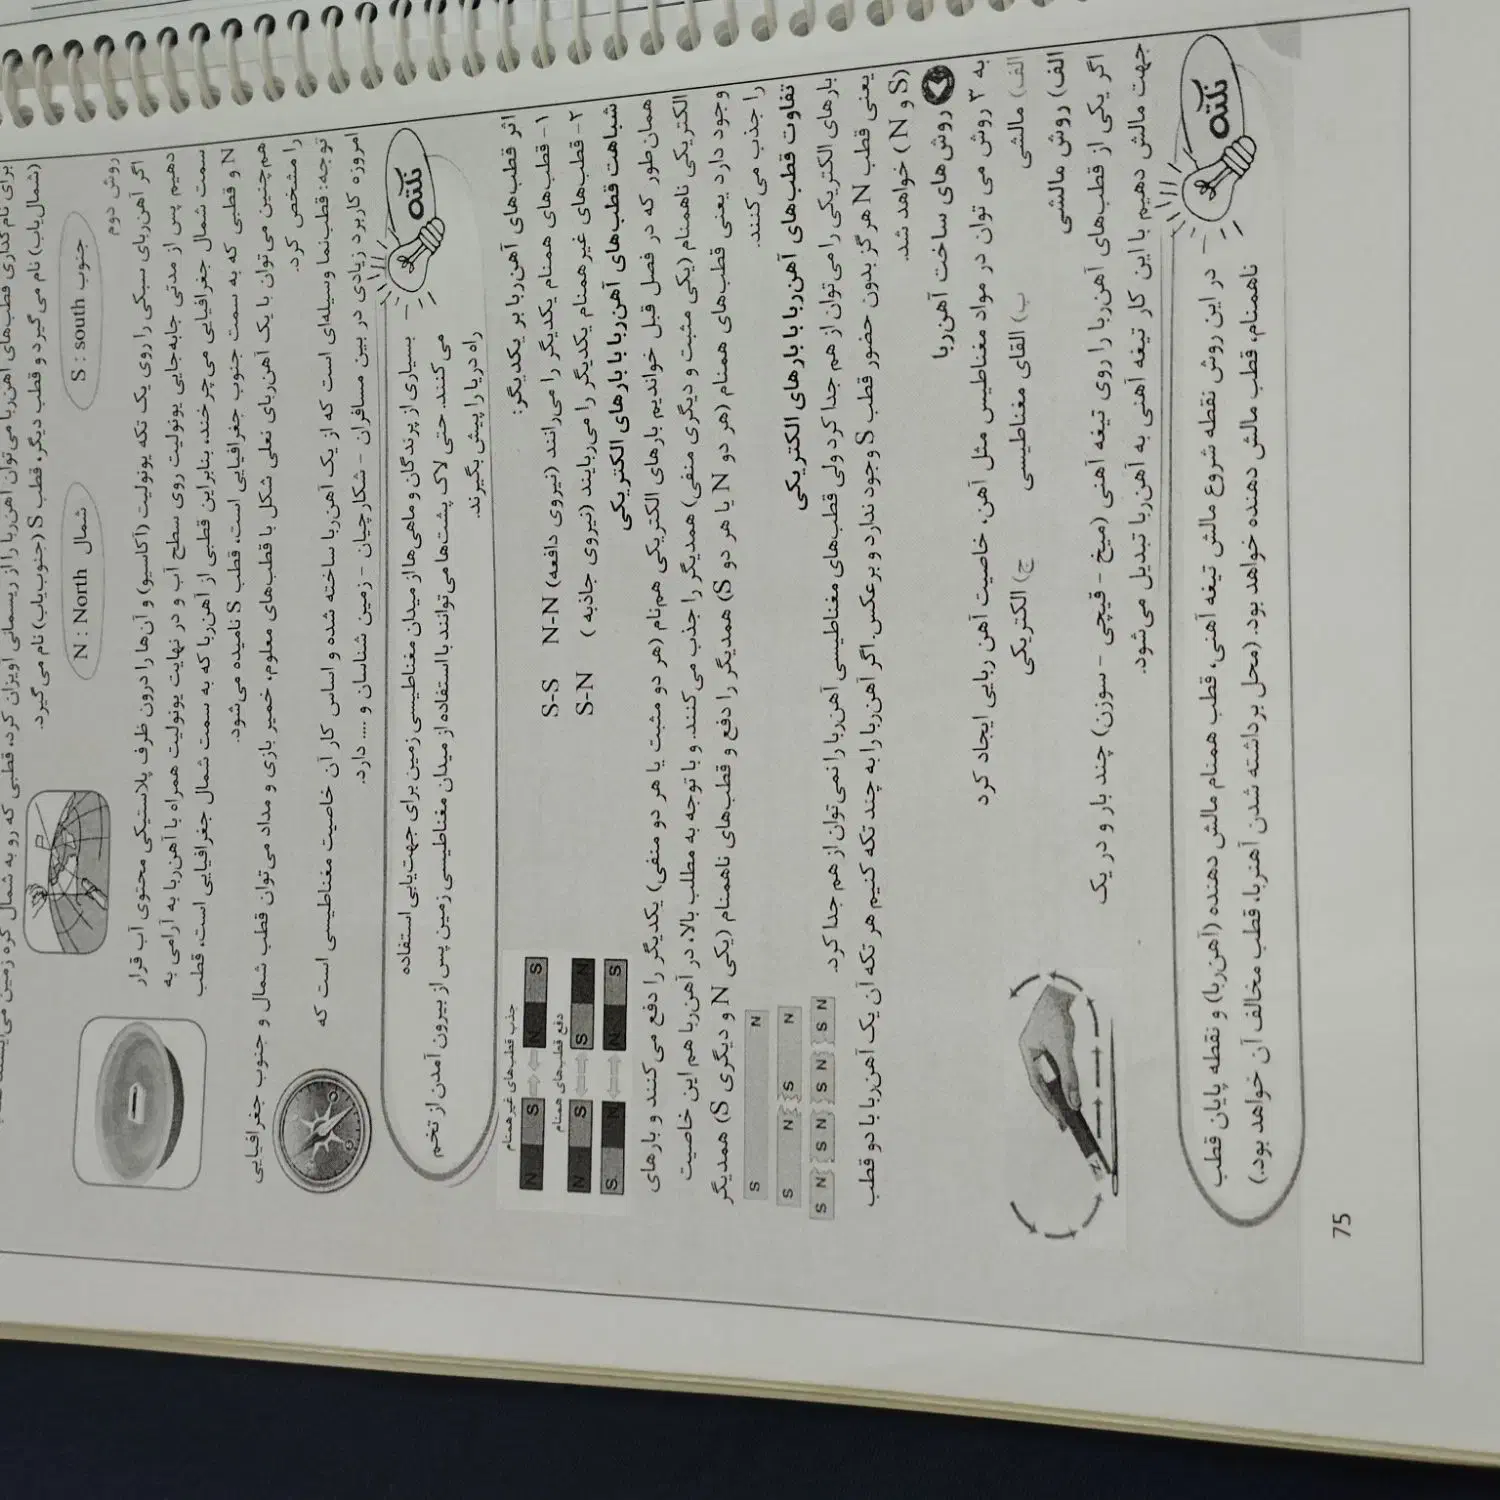 برای نام گذاری قطب‌های آهن‌ربا می‌توان آهن‌ربا را از ریسمانی آویزان کرد، قطبی که رو به شمال کره زمین می‌ایستد
(شمال‌یاب) نام می‌گیرد و قطب دیگر، قطب S (جنوب‌یاب) نام می‌گیرد.
S : south جنوب
N : North شمال
روش دوم
اگر آهن‌ربای سبکی را روی یک تکه یونولیت (آکاسیو) و آن‌ها را درون ظرف پلاستیکی محتوی آب قرار
دهیم پس از مدتی جابه‌جایی یونولیت روی سطح آب و در نهایت یونولیت همراه با آهن‌ربا به آرامی به
سمت شمال جغرافیایی می‌چرخند، بنابراین قطبی از آهن‌ربا که به سمت شمال جغرافیایی است، قطب
N و قطبی که به سمت جنوب جغرافیایی است، قطب S نامیده می‌شود.
هم‌چنین می‌توان با یک آهن‌ربای نعلی شکل با قطب‌های معلوم، خمیر بازی و مداد می‌توان قطب شمال و جنوب جغرافیایی
را مشخص کرد.
توجه: قطب‌نما وسیله‌ای است که از یک آهن‌ربا ساخته شده و اساس کار آن خاصیت مغناطیسی است که
امروزه کاربرد زیادی در بین مسافران - شکارچیان - زمین شناسان و .... دارد.
نکته
بسیاری از پرندگان و ماهی‌ها از میدان مغناطیسی زمین برای جهت‌یابی استفاده
می‌کنند. حتی لاک پشت‌ها می‌توانند با استفاده از میدان مغناطیسی زمین پس از بیرون آمدن از تخم
راه دریا را پیش بگیرند.
اثر قطب‌های آهن‌ربا بر یکدیگر:
۱- قطب‌های همنام یکدیگر را می‌رانند (نیروی دافعه) N-N S-S
۲- قطب‌های غیر همنام یکدیگر را می‌ربایند (نیروی جاذبه ) S-N
جذب قطب‌های غیرهمنام
N S N S
دفع قطب‌های همنام
N S S N
S N N S
شباهت قطب‌های آهن‌ربا با بارهای الکتریکی
همان‌طور که در فصل قبل خواندیم بارهای الکتریکی هم‌نام (هر دو مثبت یا هر دو منفی) یکدیگر را دفع می‌کنند و بارهای
الکتریکی ناهمنام (یکی مثبت و دیگری منفی) همدیگر را جذب می‌کنند. و با توجه به مطلب بالا، در آهن‌ربا هم این خاصیت
وجود دارد یعنی قطب‌های همنام (هر دو N یا هر دو S) همدیگر را دفع و قطب‌های ناهمنام (یکی N و دیگری S) همدیگر
را جذب می‌کنند.
تفاوت قطب‌های آهن‌ربا با بارهای الکتریکی
بارهای الکتریکی را می‌توان از هم جدا کرد ولی قطب‌های مغناطیسی آهن‌ربا را نمی‌توان از هم جدا کرد.
یعنی قطب N هرگز بدون حضور قطب S وجود ندارد و برعکس. اگر آهن‌ربا را به چند تکه کنیم هر تکه آن یک آهن‌ربا با دو قطب
(S و N ) خواهد شد.
S N
S N S N
S N S N S N S N
روش‌های ساخت آهن‌ربا
به ۳ روش می توان در مواد مغناطیس مثل آهن، خاصیت آهن ربایی ایجاد کرد
الف) مالشی ب) القای مغناطیسی ج) الکتریکی
الف) روش مالشی
اگر یکی از قطب‌های آهن‌ربا را روی تیغه آهنی (میخ - قیچی - سوزن) چند بار و در یک
جهت مالش دهیم با این کار تیغه آهنی به آهن‌ربا تبدیل می‌شود.
نکته
در این روش نقطه شروع مالش تیغه آهنی، قطب همنام مالش دهنده (آهن‌ربا) و نقطه پایان قطب
ناهمنام، قطب مالش دهنده خواهد بود. (محل برداشته شدن آهنربا، قطب مخالف آن خواهد بود.)
75